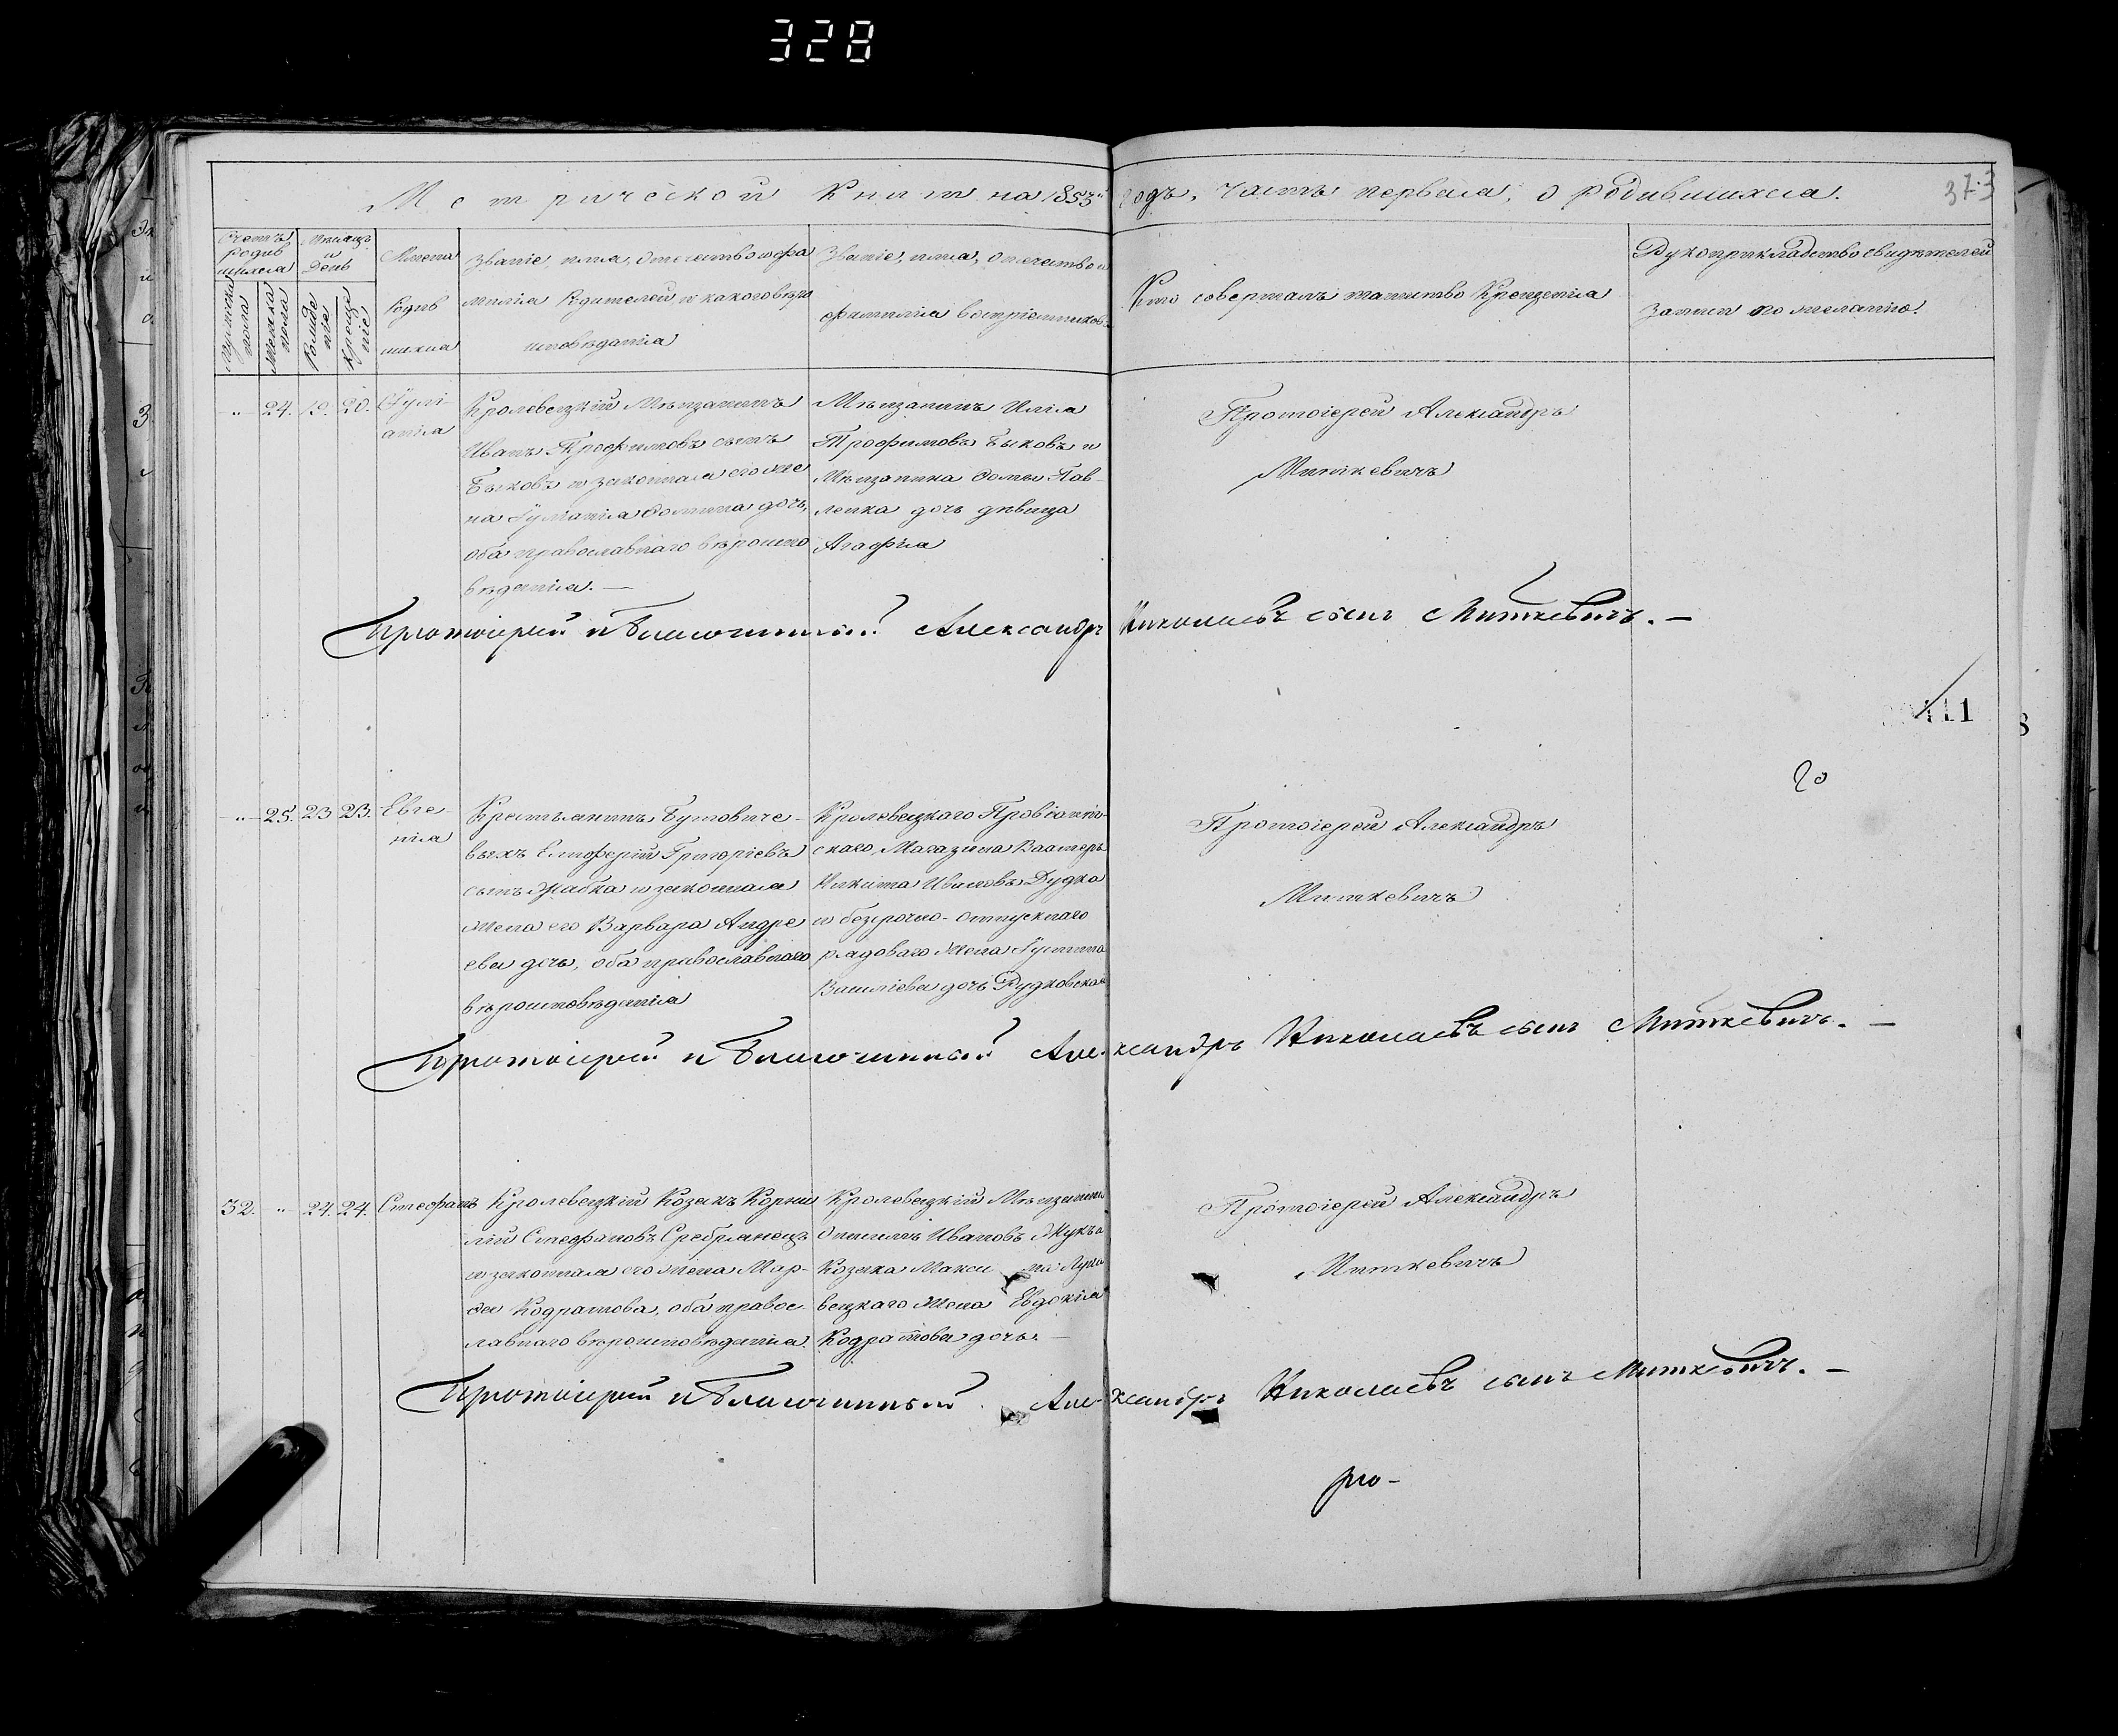 328
Метрической Книги на 1853й годъ, часть первая, о родившихся.
373
Счетъ родившихся
Мѣсяцъ и день
Имена родившихся
Званіе, имя, отчество и фамилія родителей и какого вѣроисповѣданія
Званіе, имя, отчество и фамилія воспріемниковъ.
Кто совершалъ таинство Крещенія
Рукоприкладство свидѣтелей записи по желанію.
мужеска пола
женска пола
Рожденіе
Крещеніе
" 24. 19. 20. Іуліанія
Кролевецкій Мѣщанинъ
Иванъ Трофимовъ сынъ
Быковъ и законная его же
на Іуліанія Фомина дочь,
оба православнаго вѣроиспо
вѣданія. —
Мѣщанинъ Илія
Трофимовъ Быковъ и
Мѣщанина Фомы Пав-
ленка дочь дѣвица
Агафія
Протоіерей Александръ
Миткевичъ
Протоіерей и Благочинный Александръ Николаевъ сынъ Миткевичъ. —
111
8
" 25. 23 23. Евге-
нія
Крестьянинъ Бутовиче-
выхъ Елиферій Григоріевъ
сынъ Жабка и законная
жена его Варвара Андре
ева дочь, оба православнаго
вѣроисповѣданія
Кролевецкаго Провіант-
скаго Магазина Вахтеръ
Никита Ивановъ Дудка
и безсрочно-отпускнаго
рядоваго жена Іустина
Василіева дочь Рудковская
Протоіерей Александръ
Миткевичъ
Протоіерей и Благочинный Александръ Николаевъ сынъ Миткевичъ. —
32. " 24. 24. Стефанъ
Кролевецкій Козакъ Корни
лій Стефановъ Сребрянецъ
и законная его жена Мар-
фа Кодратова, оба правос
лавнаго вѣроисповѣданія.
Кролевецкій Мѣщанинъ
Ивановъ
Козака Макси ма Луко
вецкаго жена Евдокія
Кодратова дочь. —
Протоіерей Александръ
Миткевичъ
Протоіерей и Благочинный Александръ Николаевъ сынъ Миткевичъ. —